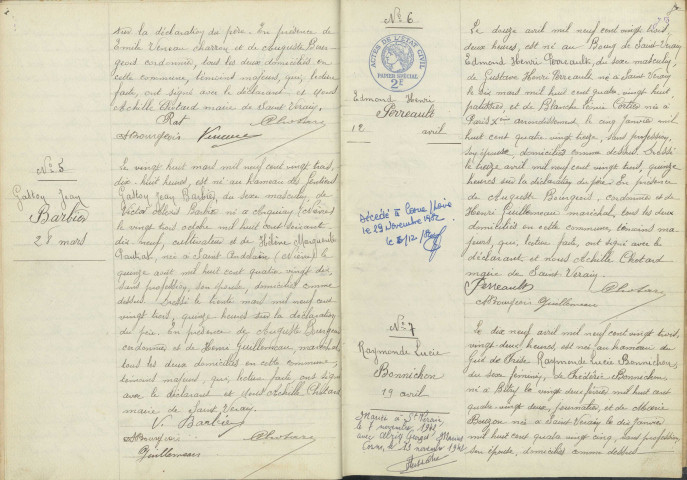 sur la déclaration du père. En présence de
Emile Veneau charron et de Auguste Bour-
geois cordonnier, tous les deux domiciliés en
cette commune, témoins majeurs, qui, lecture
faite, ont signé avec le déclarant et nous
Achille Chotard maire de Saint-Verain.
Rat Chotard
A Bourgeois Veneau
N° 5
Gaston Jean
Barbier
28 mars
Le vingt huit mars mil neuf cent vingt trois,
dix-huit heures, est né au hameau des
Gaston Jean Barbier, du sexe masculin, de
Victor Barbier né à (Nièvre)
le vingt trois octobre mil huit cent soixante
dix neuf, cultivateur et de Hélène Marguerite
née à Saint (Nièvre) le
quinze août mil huit cent quatre vingt dix,
sans profession, son épouse, domiciliés comme
dessus. Dressé le trente mars mil neuf cent
vingt trois, quinze heures sur la déclaration
du père. En présence de Auguste Bourgeois
cordonnier et de Henri Guillemeau maréchal,
tous les deux domiciliés en cette commune,
témoins majeurs, qui, lecture faite, ont signé
avec le déclarant et nous Achille Chotard
maire de Saint-Verain.
V. Barbier
A Bourgeois Chotard
Guillemeau
N° 6
ACTES DE L'ETAT CIVIL
PAPIER SPECIAL
2F
Edmond Henri
Perreault
12 avril
Décédé à Cosne s/Loire
le 29 Novembre 1982
le 8/12/
Le treize avril mil neuf cent vingt trois,
deux heures, est né au Bourg de Saint-Verain
Edmond Henri Perreault, du sexe masculin,
de Gustave Henri Perreault né à Saint-Verain
le dix mars mil huit cent quatre vingt huit
et de Blanche née à
Paris Xme arrondissement, le cinq janvier mil
huit cent quatre vingt treize, sans profession,
son épouse, domiciliés comme dessus. Dressé
le treize avril mil neuf cent vingt trois, quinze
heures sur la déclaration du père. En présence
de Auguste Bourgeois, cordonnier et de
Henri Guillemeau maréchal, tous les deux
domiciliés en cette commune, témoins ma-
jeurs, qui, lecture faite, ont signé avec le
déclarant et nous Achille Chotard
maire de Saint-Verain.
Perreault Chotard
A Bourgeois Guillemeau
N° 7
Raymonde Lucie
Bonnichon
19 avril
Mariée à St Verain
le 7 novembre 1942
avec Georges Maurice
Cosne, le 13 novembre 1942
Le dix neuf avril mil neuf cent vingt trois,
vingt deux heures, est née au hameau du
Gué de Raymonde Lucie Bonnichon,
du sexe féminin, de Frédéric Bonnichon
né à Bitry le vingt deux février mil huit cent
quatre vingt deux, journalier, et de Marie
née à Saint-Verain le dix janvier
mil huit cent quatre vingt cinq, sans profession,
son épouse, domiciliés comme dessus.